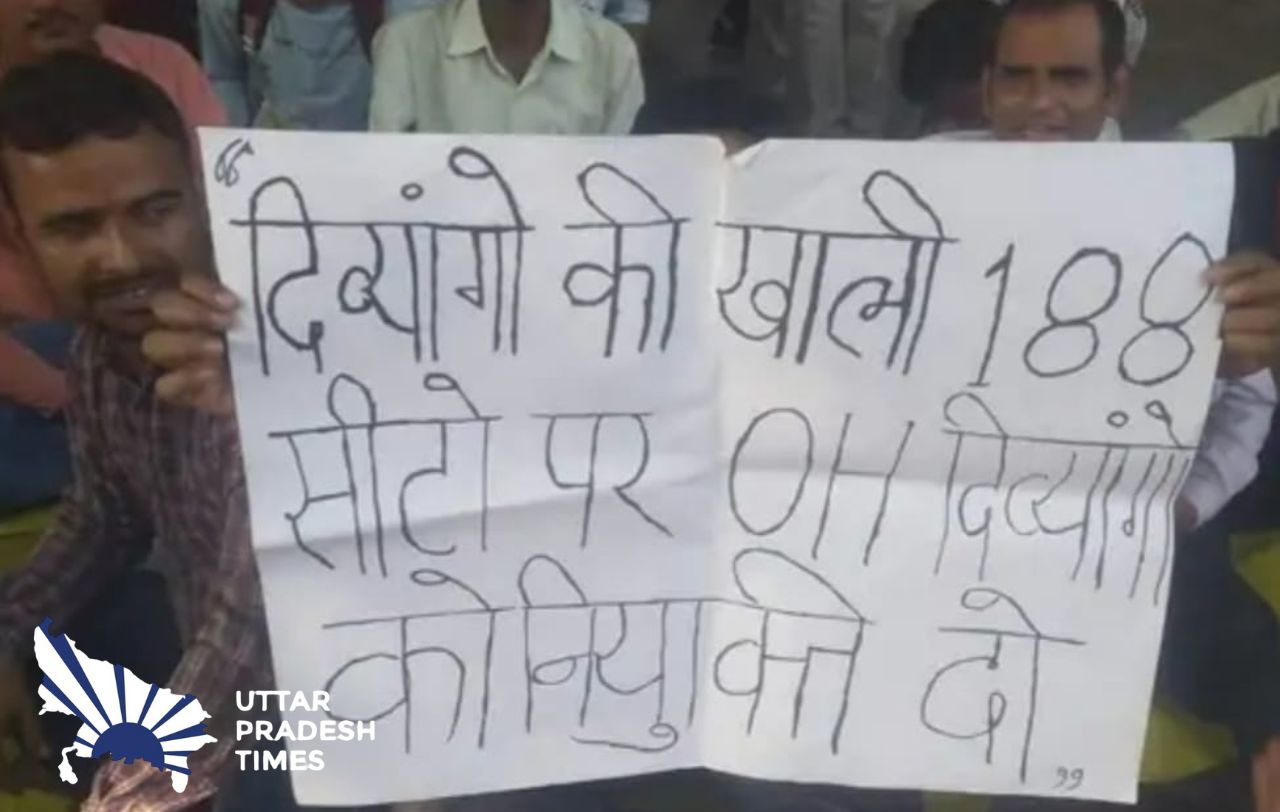 “दिव्यांगो की खाली 188
सीटो पर OH दिव्यांगो
को नियुक्ति दो”
UTTAR
PRADESH
TIMES